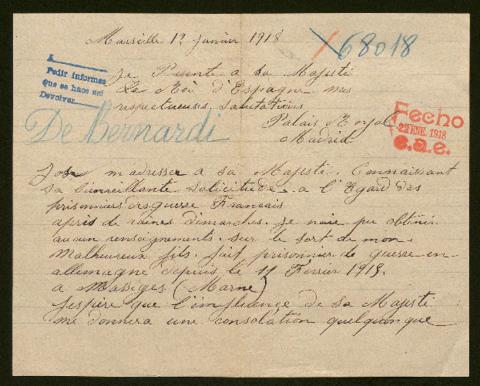 Marseille 12 Janvier 1918
68018
A
Pedir informes
que se hace así
Devolver
Je Présente a sa Majesté
Le Roi d'Espagne mes
respectueuses, salutations
Palais Royal
Madrid
De Bernardi
Fecho
22 ENE. 1918
e.a.e.
Jose m'adresser a sa Majesté. Connaissant
sa bienveillante solicitude. a l'Egard des
prisonniers guerre Francais
après de vaines démarches. Je n'aie pu obtenir
aucun renseignements. sur le sort de mon.
Malheureux fils. fait prisonnier de guerre en
allemagne depuis le 11 Février 1915.
a Massiges (Marne)
J'espère que l'influence de sa Majesté
me donnera une consolation quelquonque